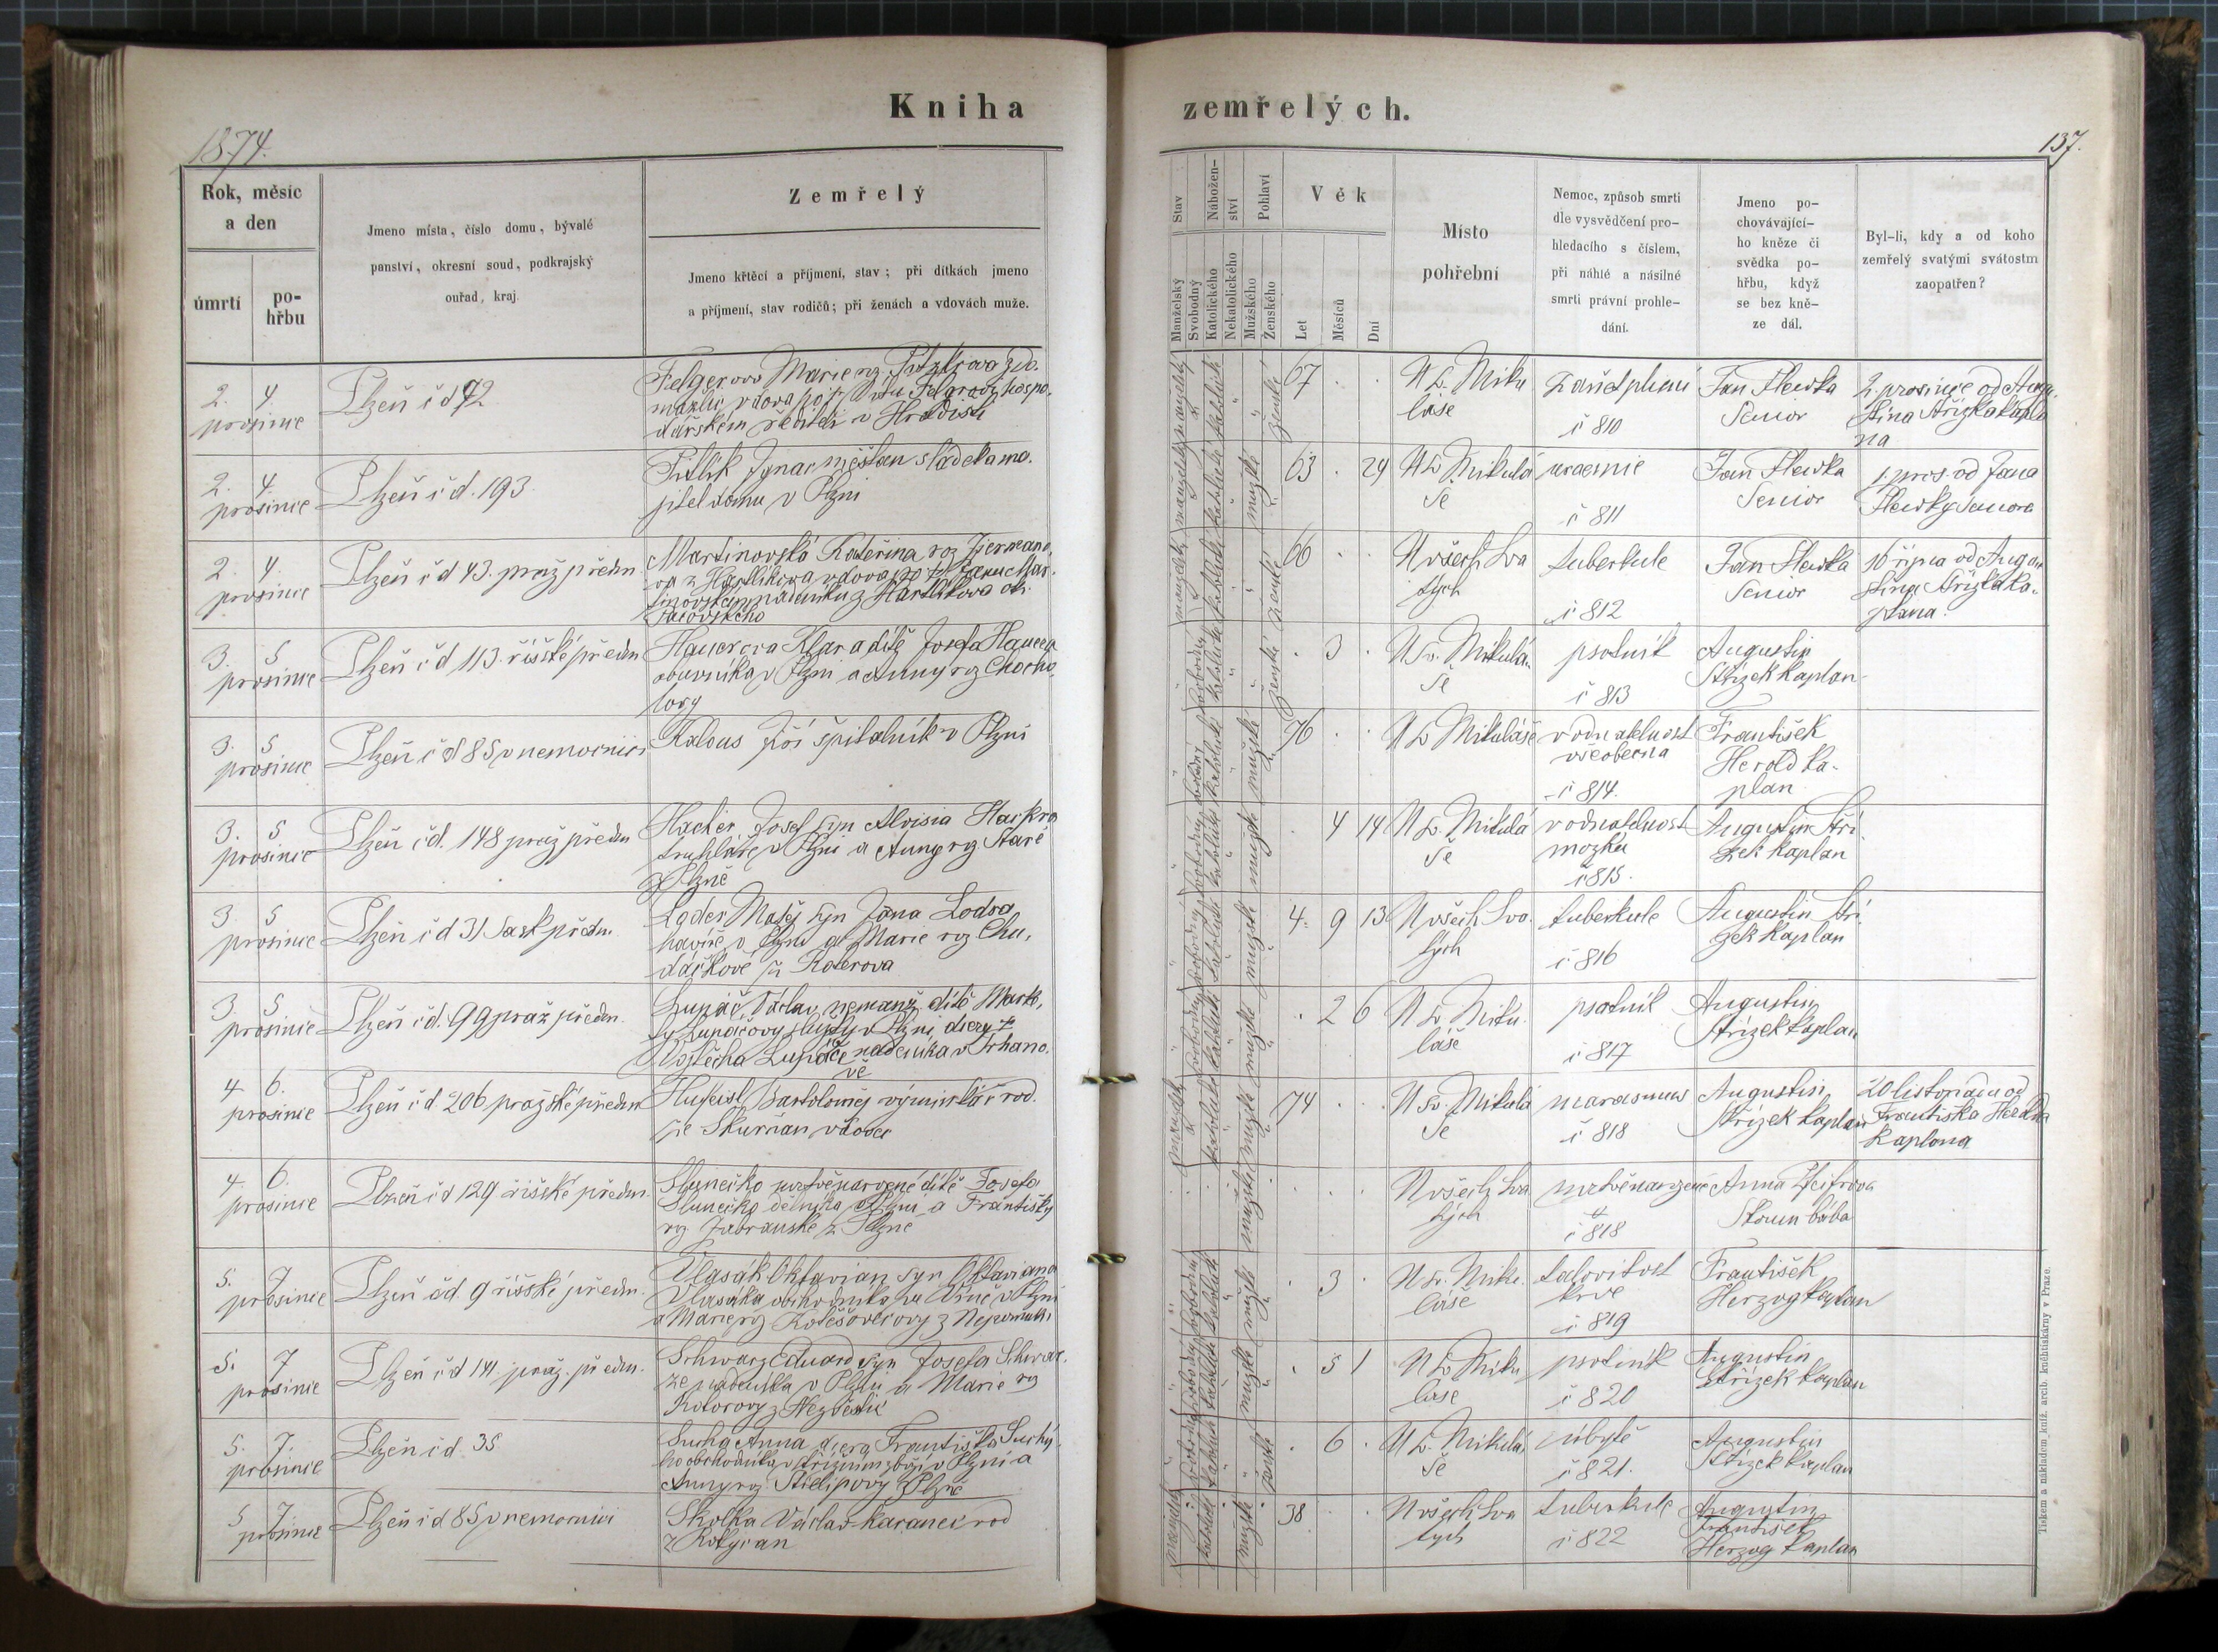 Kniha
zemřelých.
1874.
137.
Rok, měsíc
a den
úmrtí
po-
hřbu
Jmeno místa, číslo domu, bývalé
panství, okresní soud, podkrajský
ouřad, kraj.
Zemřelý
Jmeno křtěcí a příjmení, stav; při dítkách jmeno
a příjmení, stav rodičů; při ženách a vdovách muže.
Stav
Manželský
Svobodný
Nábožen-
ství
Katolického
Nekatolického
Pohlaví
Mužského
Ženského
Věk
Let
Měsíců
Dní
Místo
pohřební
Nemoc, způsob smrti
dle vysvědčení pro-
hledacího s číslem,
při náhlé a násilné
smrti právní prohle-
dání.
Jmeno po-
chovávající-
ho kněze či
svědka po-
hřbu, když
se bez kně-
ze dál.
Byl-li, kdy a od koho
zemřelý svatými svátostm
zaopatřen?
2. 4.
prosince
Plzeň čd 72
Felgerova Marie
dářském řediteli v Hradisti
ženské
67
U Sv. Miku
láše
č 810
Jan Hlewka
Senior
2 prosince od Augu
stina Střízka kapla
na
2. 4.
prosince
Plzeň č d. 193
Pitlik Ignac měštan sládek a ma.
jitel domu v Plzni
mužské
63 . 24
U Sv Mikulá
še
uraemie
č 811
Jan Hlewka
Senior
1. pros. od Jana
Hlewky Seniora
2. 4.
prosince
Plzeň č d 43. praž předm
Martinovská Kateřina roz Hermano
va z Hartlikova vdova
tinovském nádeníku z Hartlikova ok.
ženské
66
U všech Sva
tých
tuberkule
č 812
Jan Hlewka
Senior
16 října od Augu
stina Střízka ka-
plana.
3. 5
prosince
Plzeň č d 113. říšské předm
Hauerova Klara dítě Josefa Hauera
obuvníka v Plzni a Anny roz Chocho
lovy
ženské
. 3 .
U Sv. Mikulá-
še
psotník
č 813
Augustin
Střízek kaplan
3. 5
prosince
Plzeň č d 85 v nemocnici
Kalous Jiří špitalník v Plzni
mužské
76
U Sv Mikuláše
vodnatelnost
všeobecna
č 814.
František
Herold ka-
plan
3. 5
prosince
Plzeň čd. 148 praž předm
Hacker Josef syn Aloisia Hackra
truhláře v Plzni a Anny roz Staré
z Plzně
mužské
. 4 14
U Sv. Mikulá
še
vodnatelnost
mozku
č 815.
Augustin Stří
zek kaplan
3. 5
prosince
Plzeň č d 31 Sask předm.
Loder Matěj syn Jána Lodra
havíře v Plzni a Marie roz Chu-
dáčkové z Koterova
mužské
4. 9 13
U všech Sva
tých
tuberkule
č 816
Augustin Stří
zek kaplan
3. 5
prosince
Plzeň č d. 99 praž předm.
Lupáč Václav nemanž dítě Mark.
ty Lupáčovy služky v Plzni dcery †
Vojtěcha Lupáče nadeníka v Trhano.
vě
mužské
. 2 6
U Sv. Miku
láše
psotník
č 817
Augustin
Střízek kaplan
4 6.
prosince
Plzeň č d. 206 pražské předm
Hufeisl Bartoloměj výminkář rod.
ze Skurňan vdovec
mužské
74
U Sv. Mikulá
še
marasmus
č 818
Augustin
Střízek kaplan
20 listopadu od
Františka Herolda
kaplana
4. 6.
prosince
Plzeň č d 129. říšské předm.
Slunečko mrtvěnarozené dítě Josefa
Slunečko dělníka v Plzni a Františky
roz Zabranské z Plzně
mužské
U všech Sva
tých
mrtvěnarozené
č 818
Anna
bába
5. 7
prosince
Plzeň čd. 9 říšské předm.
Vlasák Oktavian syn Oktaviana
Vlasáka obchodníka
a Marie roz z Nepomuku
mužské
. 3 .
U Sv. Miku
láše
krve
č 819
František
Herzog kaplan
5. 7
prosince
Plzeň č d 141. praž. předm.
Schwarz Eduard syn Josefa Schwar-
ze nadeníka v Plzni a Marie roz
Kotorovy z Nezvěstic
mužské
. 5 1
U Sv Miku
láše
psotník
č 820
Augustin
Střízek kaplan
5. 7.
prosince
Plzeň č d. 35
Sucha Anna dcera Františka Suchý-
ho obchodníka v střižním zboží v Plzni a
Anny roz z Plzně
ženské
. 6 .
U Sv. Mikulá
še
úbytě
č 821.
Augustin
Střízek kaplan
5 7.
prosince
Plzeň č d 85 v nemocnici
Skolka Václav karanec rod
z Rokycan
mužské
38
U všech Sva
tých
tuberkule
č 822
Augustin
František
Herzog kaplan
Tiskem a nákladem kníž. arcib. knihtiskárny v Praze.